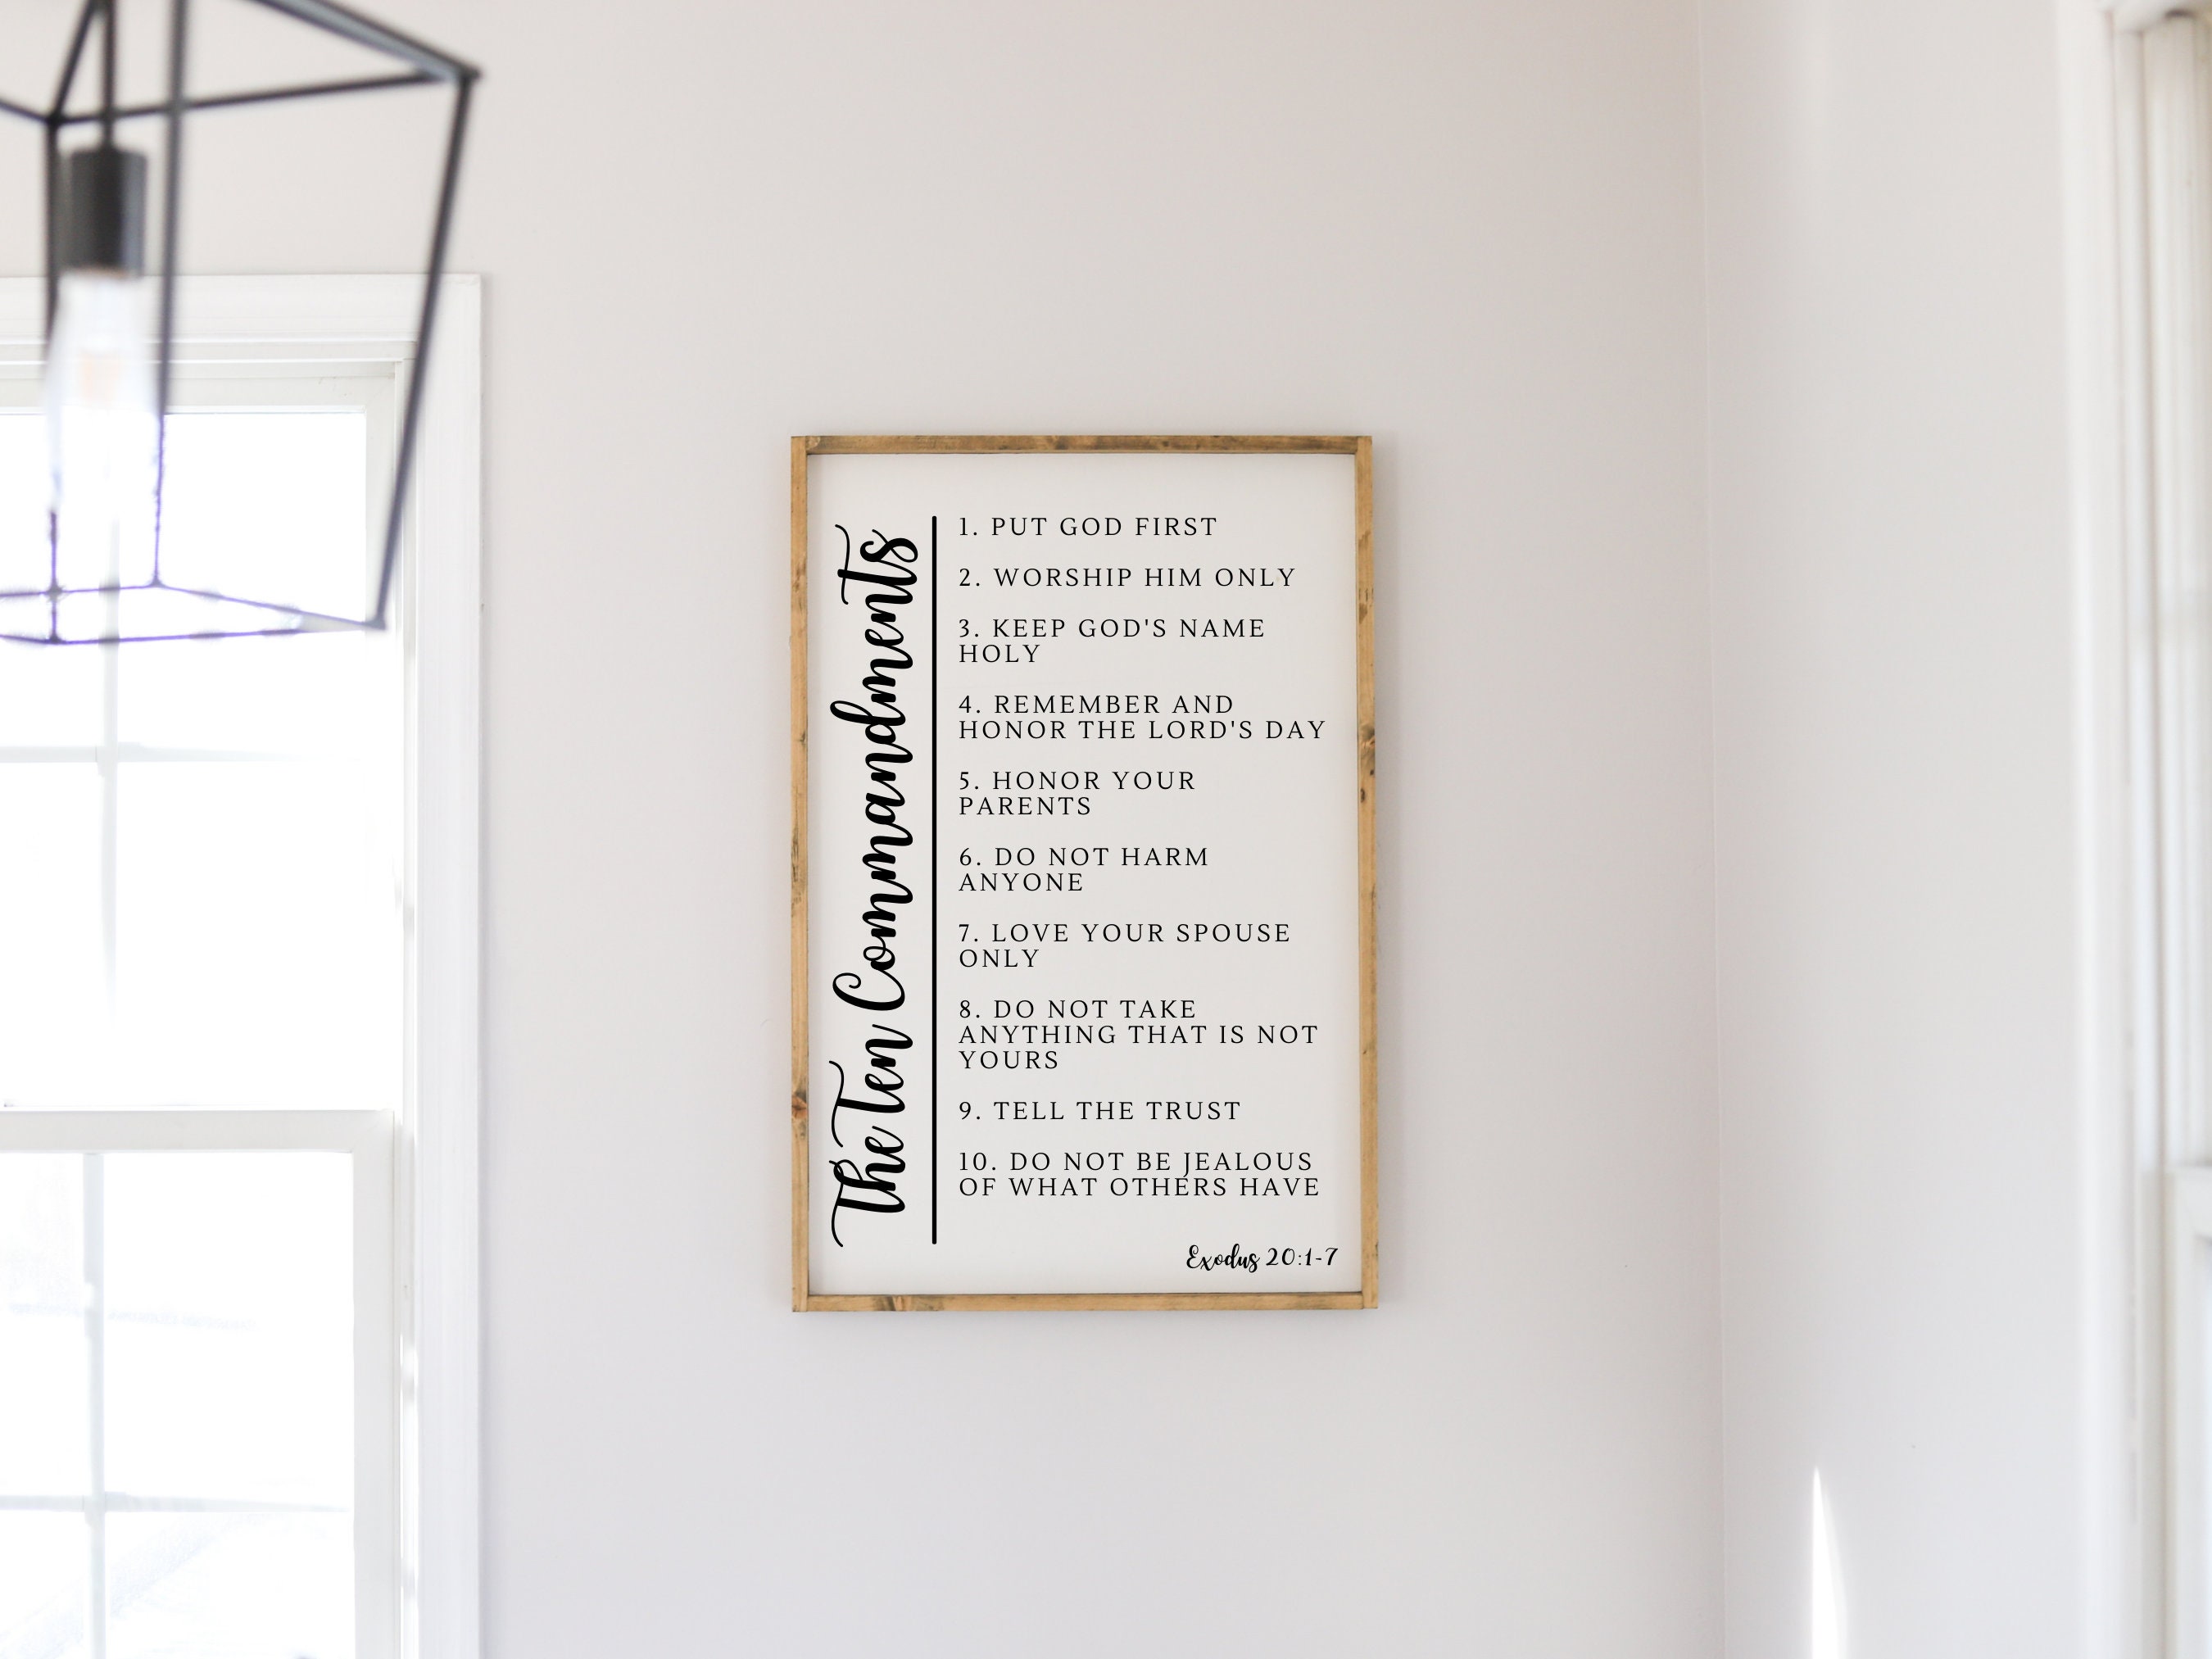 The Ten Commandments
1. PUT GOD FIRST
2. WORSHIP HIM ONLY
3. KEEP GOD'S NAME
HOLY
4. REMEMBER AND
HONOR THE LORD'S DAY
5. HONOR YOUR
PARENTS
6. DO NOT HARM
ANYONE
7. LOVE YOUR SPOUSE
ONLY
8. DO NOT TAKE
ANYTHING THAT IS NOT
YOURS
9. TELL THE TRUST
10. DO NOT BE JEALOUS
OF WHAT OTHERS HAVE
Exodus 20:1-7